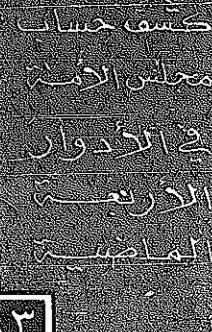 كشف حساب
مجلس الأمة
في الأدوار
الأربعة
الماضية
٣